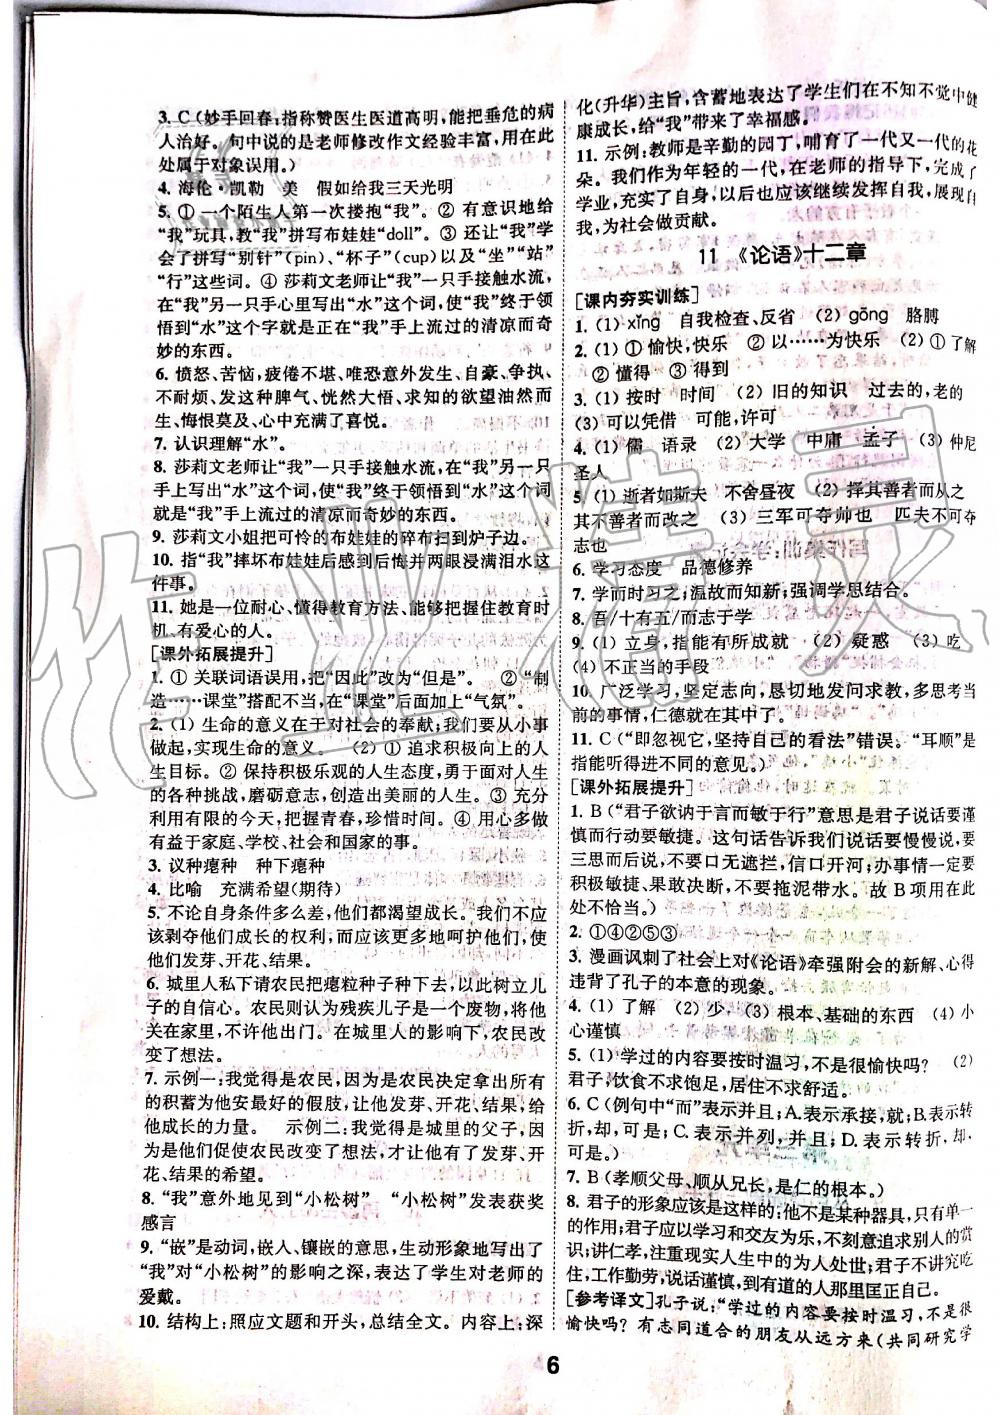 3. C（妙手回春，指称赞医生医道高明，能把垂危的病
人治好。句中说的是老师修改作文经验丰富，用在此
处属于对象误用。）
4. 海伦·凯勒　美　假如给我三天光明
5. ① 一个陌生人第一次搂抱“我”。② 有意识地给
“我”玩具，教“我”拼写布娃娃“doll”。③ 还让“我”学
会了拼写“别针”（pin）、“杯子”（cup）以及“坐”“站”
“行”这些词。④ 莎莉文老师让“我”一只手接触水流，
在“我”另一只手心里写出“水”这个词，使“我”终于领
悟到“水”这个字就是正在“我”手上流过的清凉而奇
妙的东西。
6. 愤怒、苦恼，疲倦不堪、唯恐意外发生、自豪、争执、
不耐烦、发这种脾气、恍然大悟、求知的欲望油然而
生、悔恨莫及、心中充满了喜悦。
7. 认识理解“水”。
8. 莎莉文老师让“我”一只手接触水流，在“我”另一只
手上写出“水”这个词，使“我”终于领悟到“水”这个词
就是“我”手上流过的清凉而奇妙的东西。
9. 莎莉文小姐把可怜的布娃娃的碎布扫到炉子边。
10. 指“我”摔坏布娃娃后感到后悔并两眼浸满泪水这
件事。
11. 她是一位耐心、懂得教育方法、能够把握住教育时
机、有爱心的人。
[课外拓展提升]
1. ① 关联词语误用，把“因此”改为“但是”。　② “制
造……课堂”搭配不当，在“课堂”后面加上“气氛”。
2. （1）生命的意义在于对社会的奉献；我们要从小事
做起，实现生命的意义。　（2）① 追求积极向上的人
生目标。② 保持积极乐观的人生态度，勇于面对人生
的各种挑战，磨砺意志，创造出美丽的人生。③ 充分
利用有限的今天，把握青春，珍惜时间。④ 用心多做
有益于家庭、学校、社会和国家的事。
3. 议种瘪种　种下瘪种
4. 比喻　充满希望（期待）
5. 不论自身条件多么差，他们都渴望成长。我们不应
该剥夺他们成长的权利，而应该更多地呵护他们，使
他们发芽、开花、结果。
6. 城里人私下请农民把瘪粒种子种下去，以此树立儿
子的自信心。农民则认为残疾儿子是一个废物，将他
关在家里，不许他出门。在城里人的影响下，农民改
变了想法。
7. 示例一：我觉得是农民，因为是农民决定拿出所有
的积蓄为他安最好的假肢，让他发芽、开花、结果，给
他成长的力量。　示例二：我觉得是城里的父子，因
为是他们促使农民改变了想法，才让他有了发芽、开
花、结果的希望。
8. “我”意外地见到“小松树”　“小松树”发表获奖
感言
9. “嵌”是动词，嵌入、镶嵌的意思，生动形象地写出了
“我”对“小松树”的影响之深，表达了学生对老师的
爱戴。
10. 结构上：照应文题和开头，总结全文。内容上：深
化（升华）主旨，含蓄地表达了学生们在不知不觉中健
康成长，给“我”带来了幸福感。
11. 示例：教师是辛勤的园丁，哺育了一代又一代的花
朵。我们作为年轻的一代，在老师的指导下，完成了
学业，充实了自身，以后也应该继续发挥自我，展现自
我，为社会做贡献。
11　《论语》十二章
[课内夯实训练]
1. （1）xǐng　自我检查、反省　（2）gōng　胳膊
2. （1）① 愉快，快乐　② 以……为快乐　（2）① 了解
② 懂得　③ 得到
3. （1）按时　时间　（2）旧的知识　过去的，老的
（3）可以凭借　可能，许可
4. （1）儒　语录　（2）大学　中庸　孟子　（3）仲尼
圣人
5. （1）逝者如斯夫　不舍昼夜　（2）择其善者而从之
其不善者而改之　（3）三军可夺帅也　匹夫不可夺
志也
6. 学习态度　品德修养
7. 学而时习之；温故而知新；强调学思结合。
8. 吾/十有五/而志于学
9. （1）立身，指能有所成就　（2）疑惑　（3）吃
（4）不正当的手段
10. 广泛学习，坚定志向，恳切地发问求教，多思考当
前的事情，仁德就在其中了。
11. C（“即忽视它，坚持自己的看法”错误。“耳顺”是
指能听得进不同的意见。）
[课外拓展提升]
1. B（“君子欲讷于言而敏于行”意思是君子说话要谨
慎而行动要敏捷。这句话告诉我们说话要慢慢说，要
三思而后说，不要口无遮拦，信口开河；办事情一定要
积极敏捷、果敢决断，不要拖泥带水。故 B 项用在此
处不恰当。）
2. ①④②⑤③
3. 漫画讽刺了社会上对《论语》牵强附会的新解、心得
违背了孔子的本意的现象。
4. （1）了解　（2）少　（3）根本、基础的东西　（4）小
心谨慎
5. （1）学过的内容要按时温习，不是很愉快吗？　（2）
君子，饮食不求饱足，居住不求舒适。
6. C（例句中“而”表示并且；A. 表示承接，就；B. 表示转
折，却，可是；C. 表示并列，并且；D. 表示转折，却，
可是。）
7. B（孝顺父母、顺从兄长，是仁的根本。）
8. 君子的形象应该是这样的：他不是某种器具，只有单一
的作用；君子应以学习和交友为乐，不刻意追求别人的赏
识；讲仁孝，注重现实人生中的为人处世；君子不讲究吃
住，工作勤劳，说话谨慎，到有道的人那里匡正自己。
[参考译文]孔子说：“学过的内容要按时温习，不是很
愉快吗？有志同道合的朋友从远方来（共同研究学
6
作业精灵